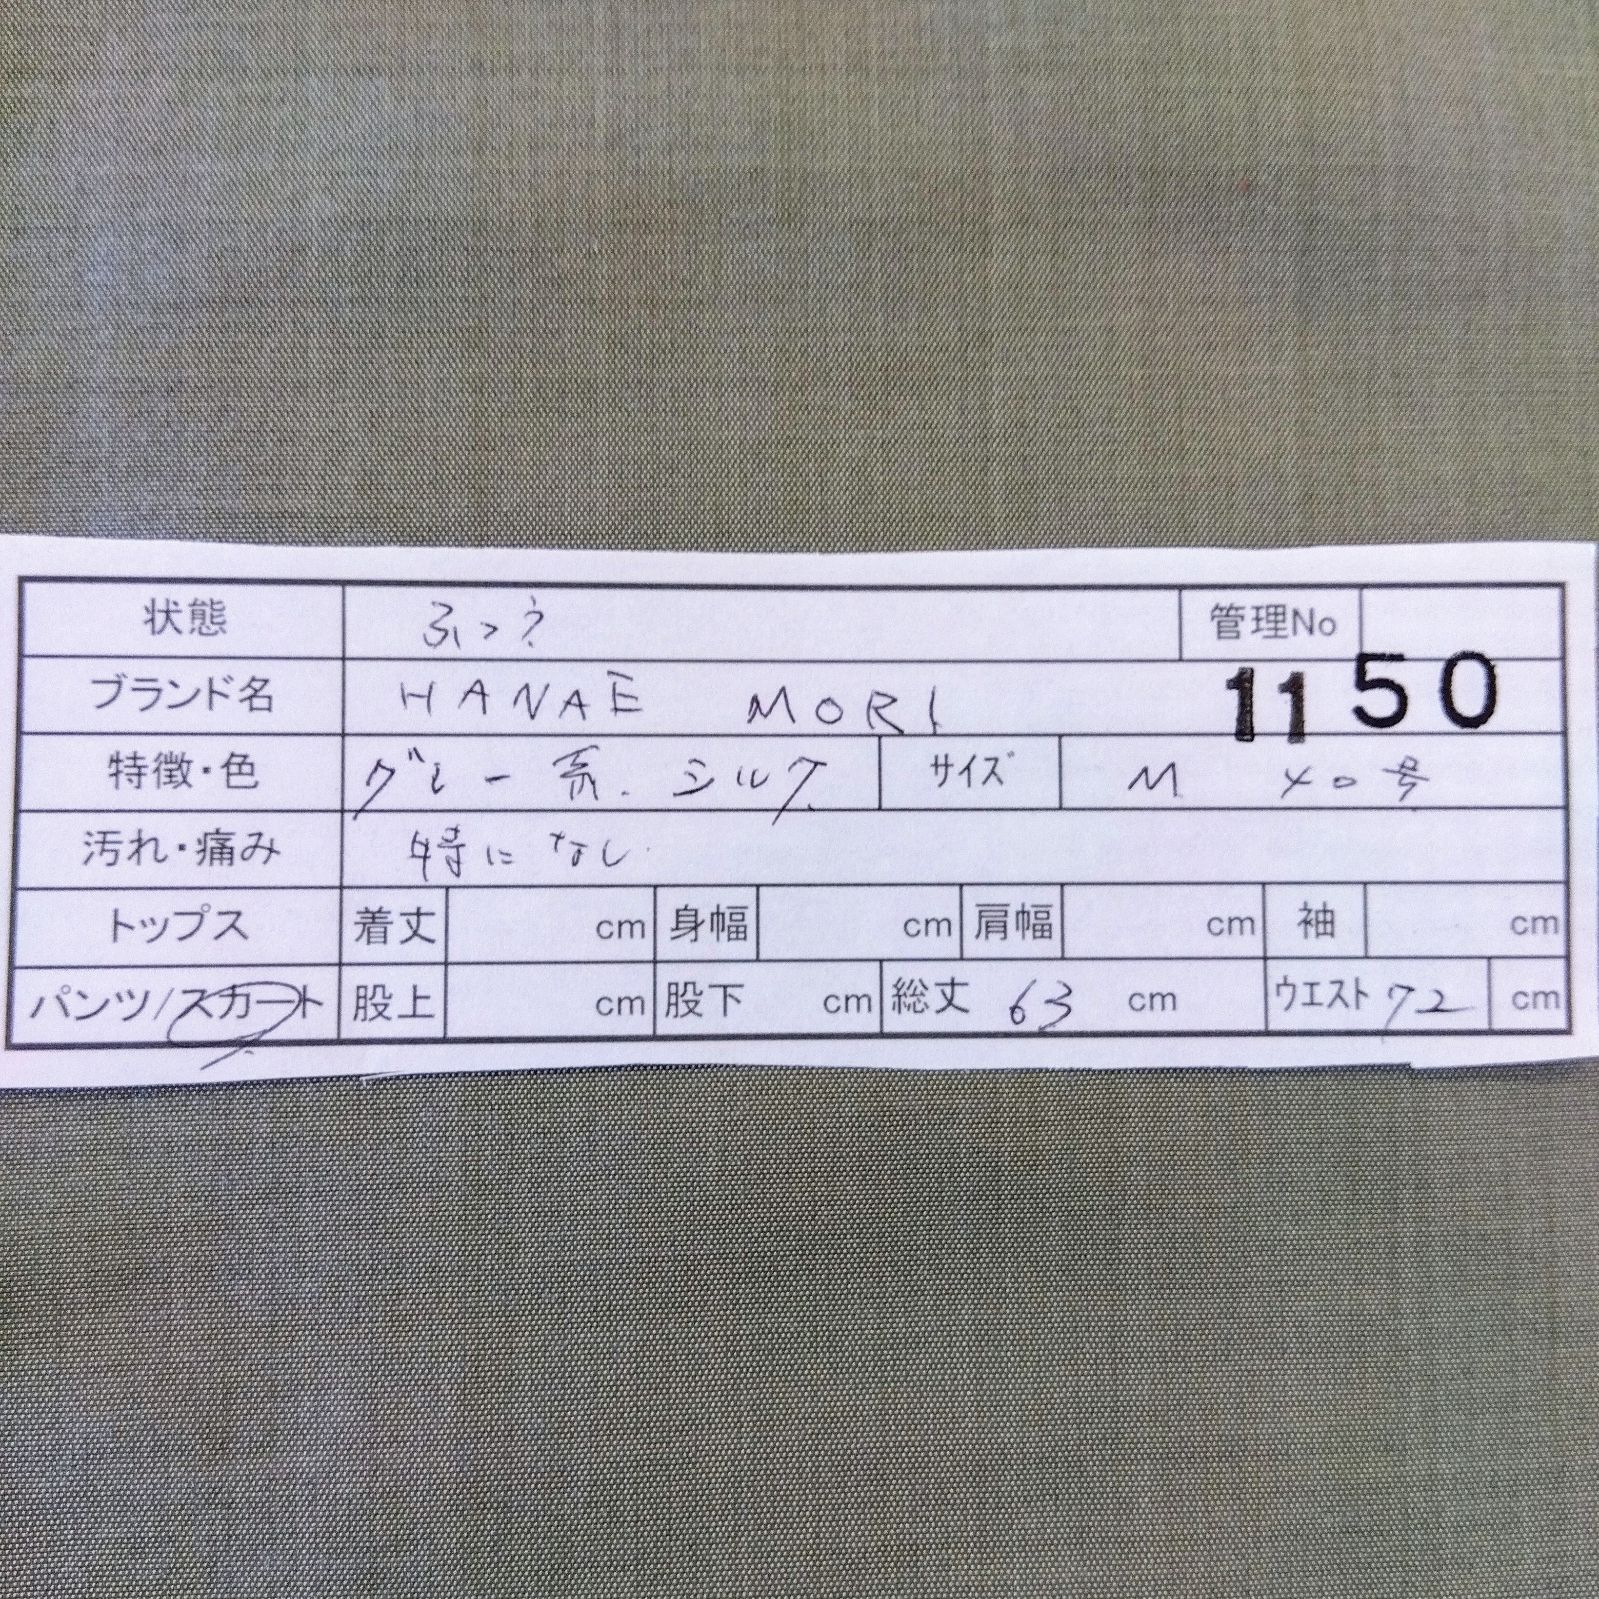 状態 ふつう 管理No
ブランド名 HANAE MORI 1150
特徴・色 グレー系. シルク サイズ M 40号
汚れ・痛み 特になし
トップス 着丈 cm 身幅 cm 肩幅 cm 袖 cm
パンツ/スカート 股上 cm 股下 cm 総丈 63 cm ウエスト 72 cm